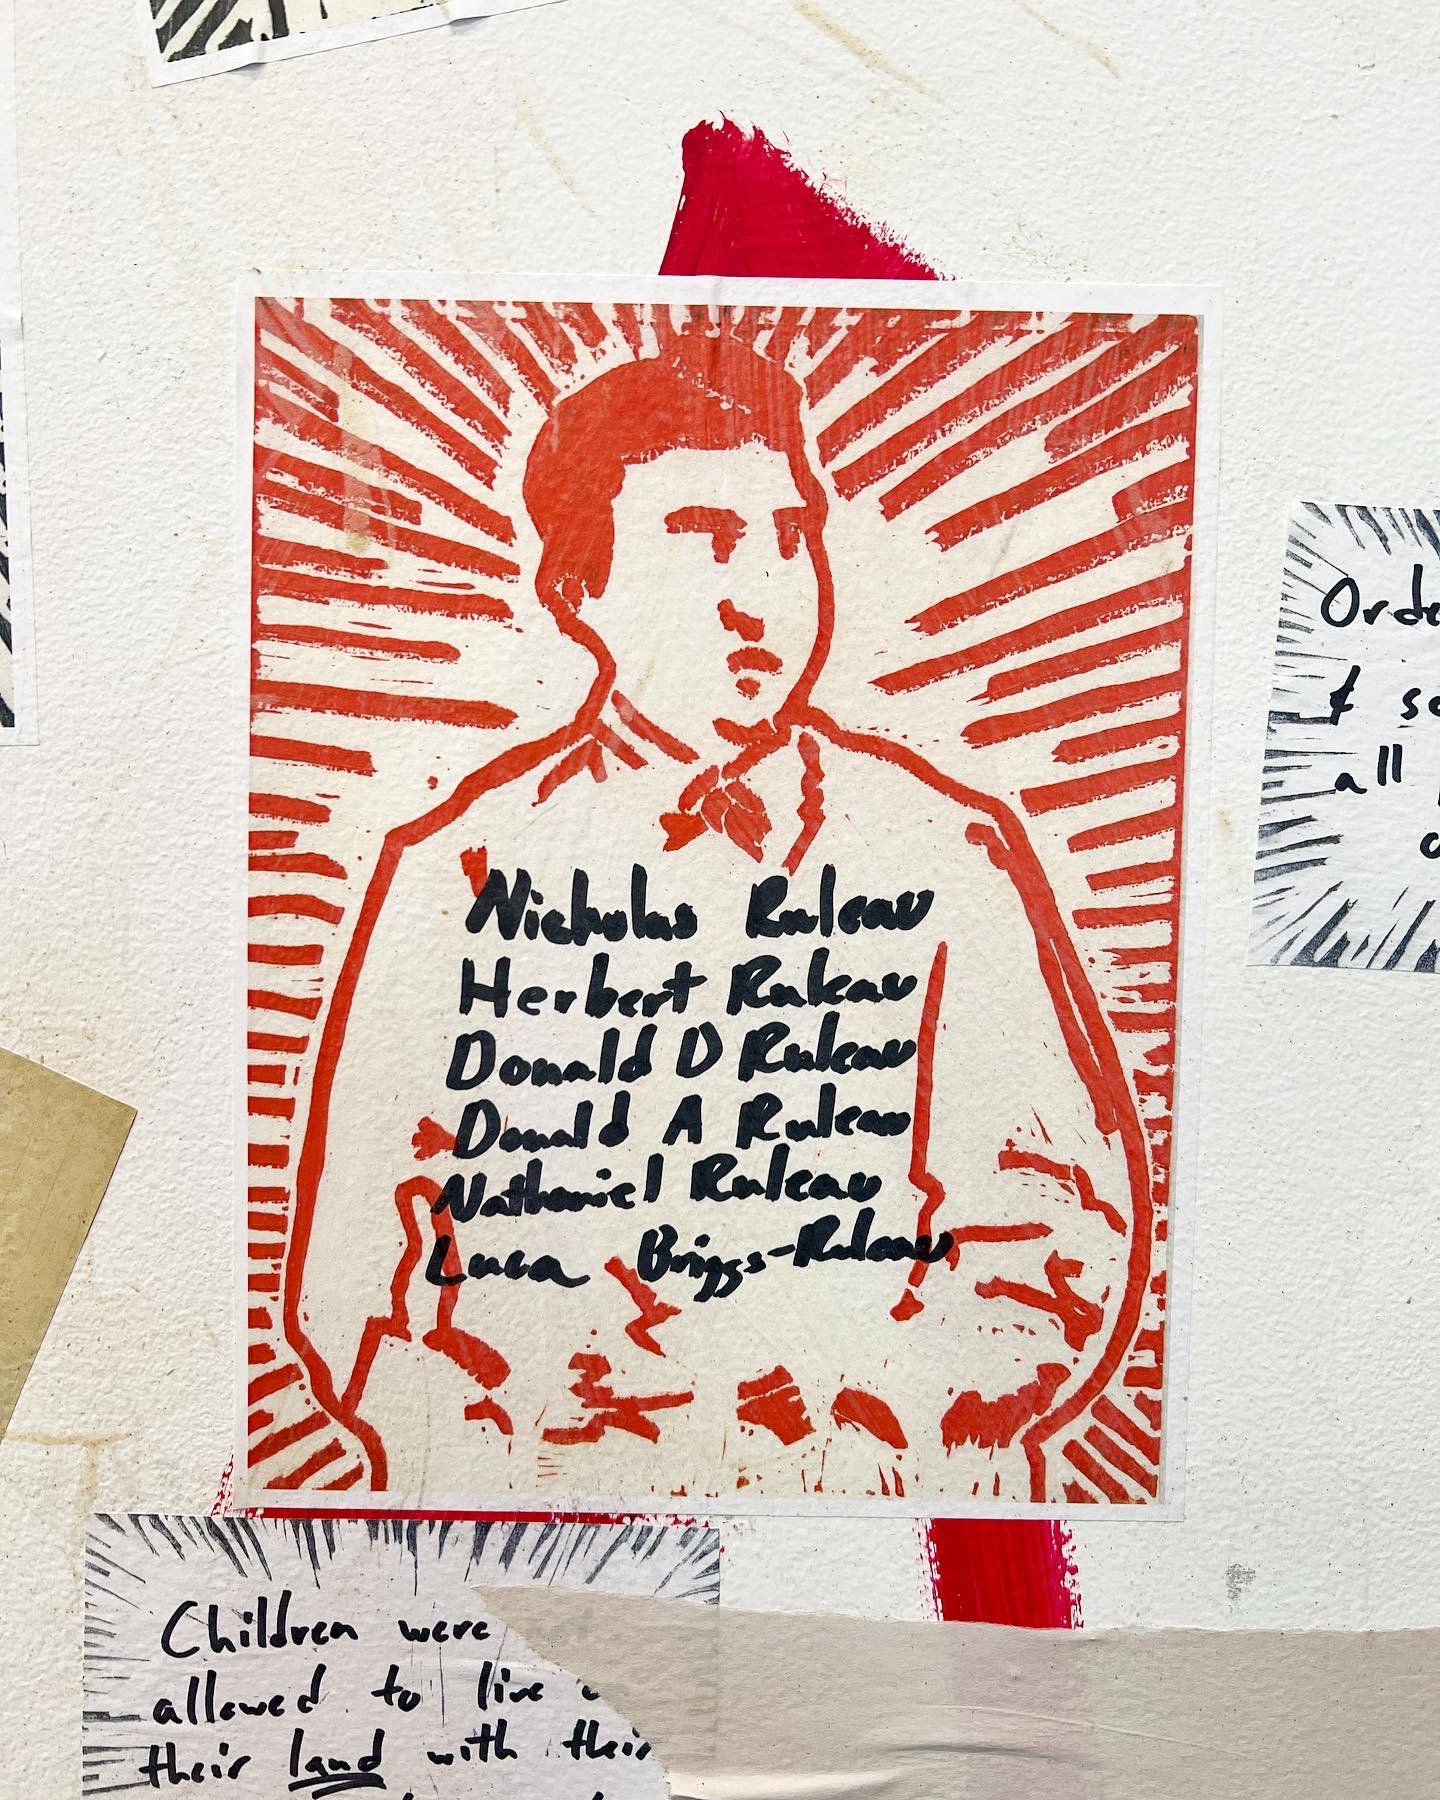 Nicholas Ruleau
Herbert Ruleau
Donald D Ruleau
Donald A Ruleau
Nathaniel Ruleau
Luca Briggs-Ruleau
&
all
Children were
allowed to live
their land with their